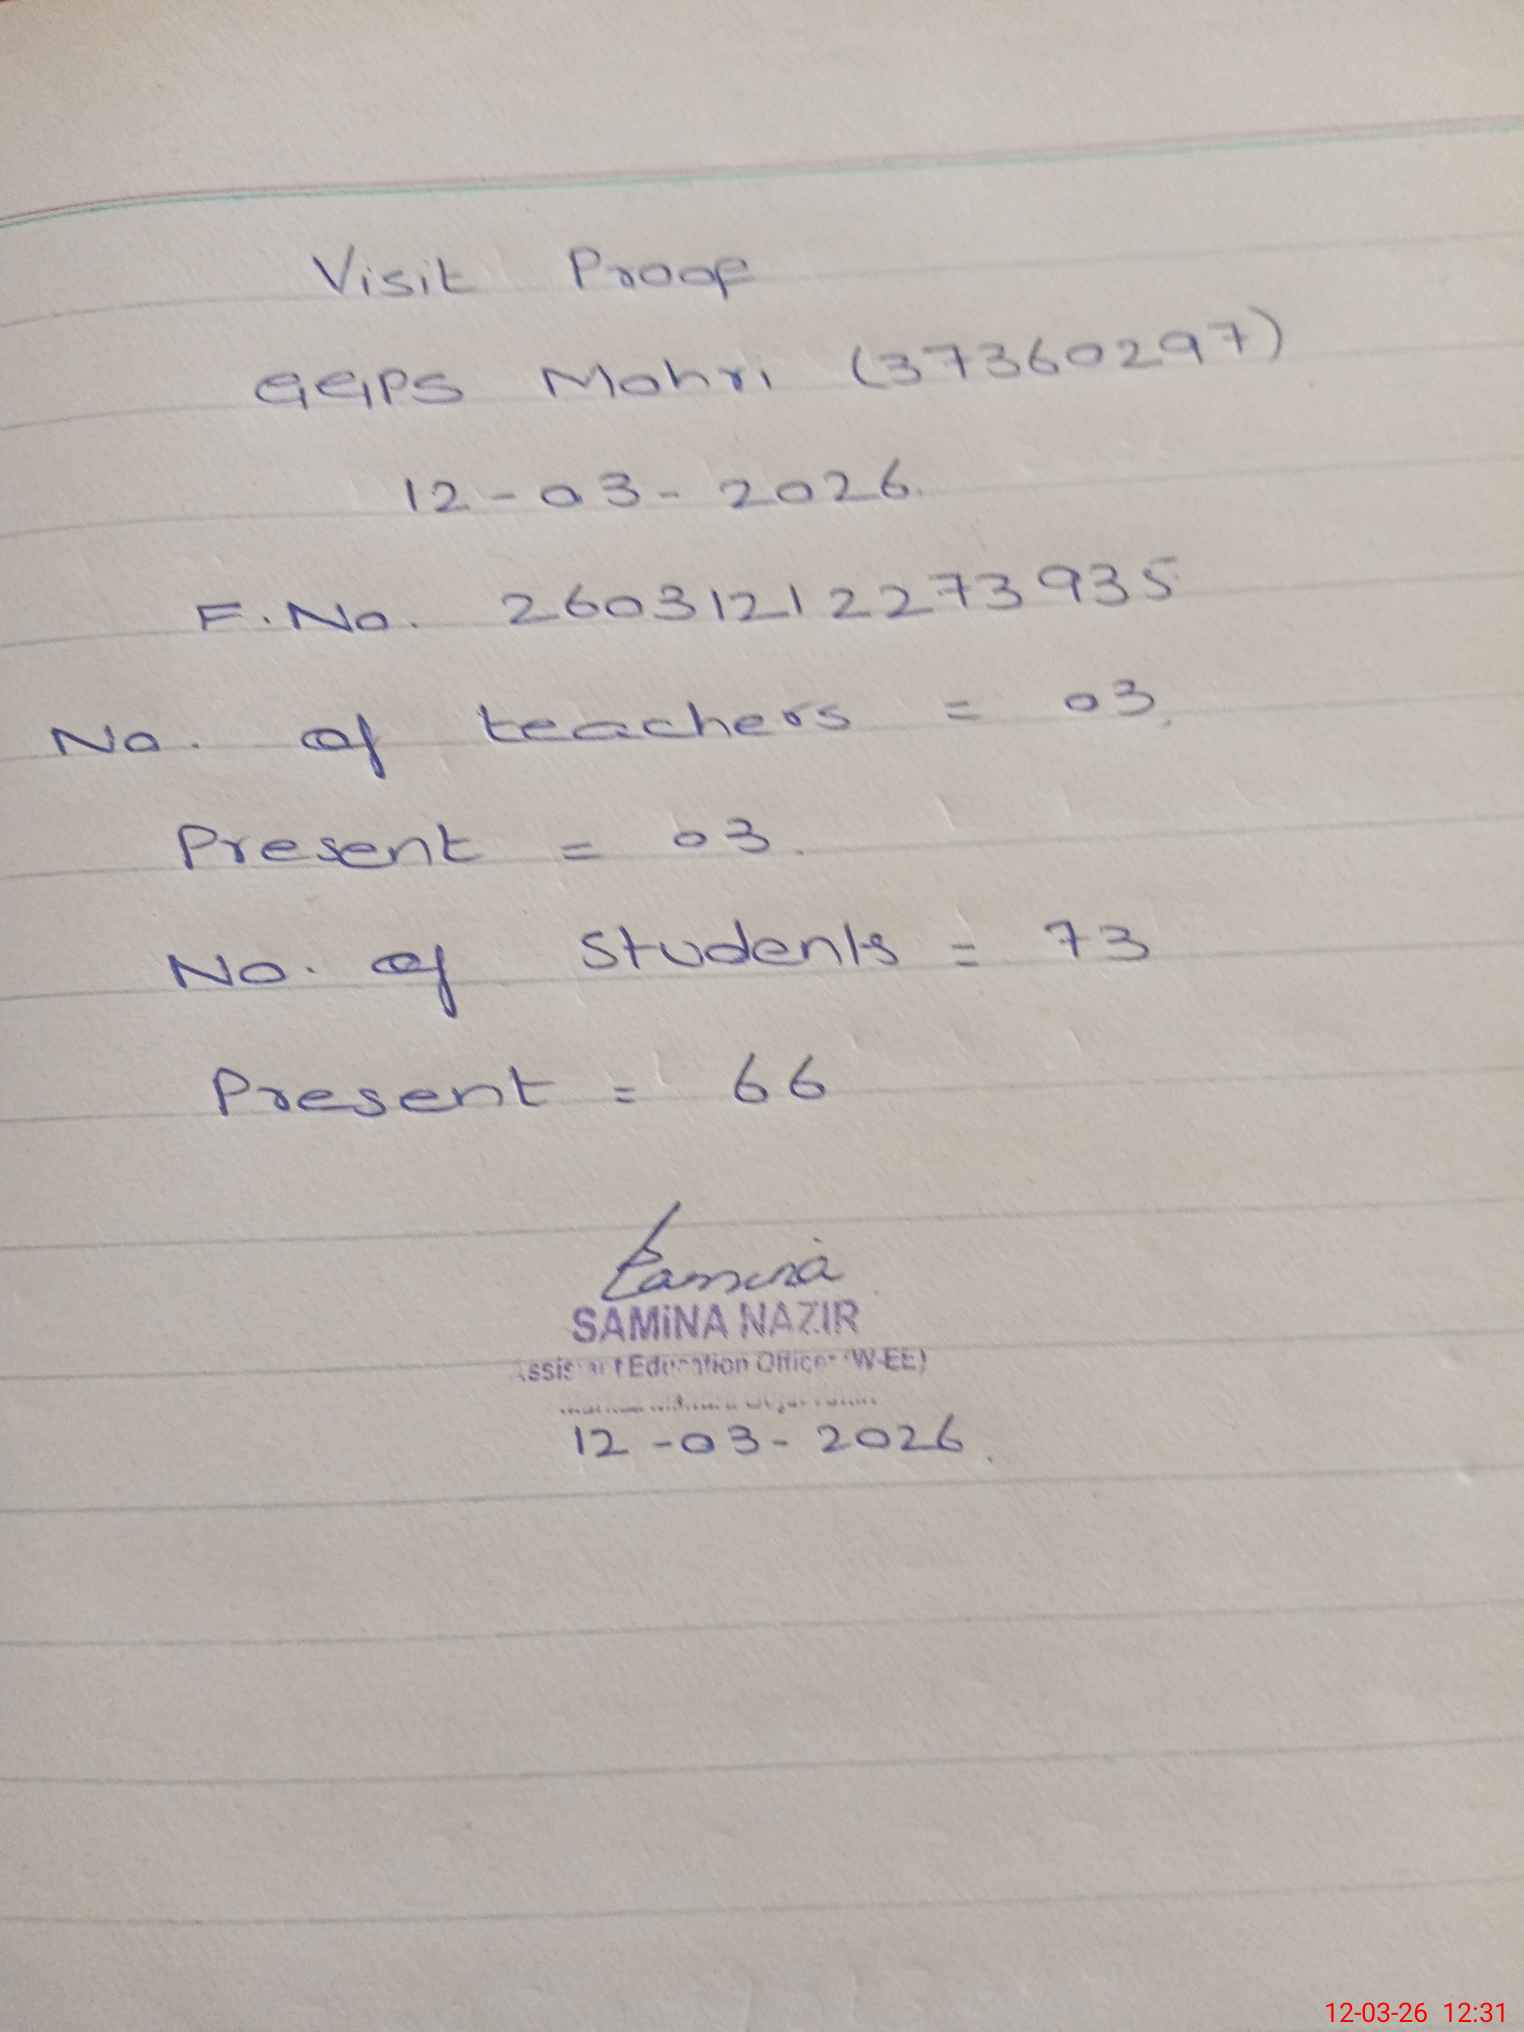 Visit Proof
GGPS Mohri (37360297)
12-03-2026.
F.No. 26031212273935
No. of teachers = 03.
Present = 03.
No. of students = 73
Present = 66
Samina
SAMiNA NAZIR
Assistant Education Officer (W-EE)
12-03-2026.
12-03-26 12:31